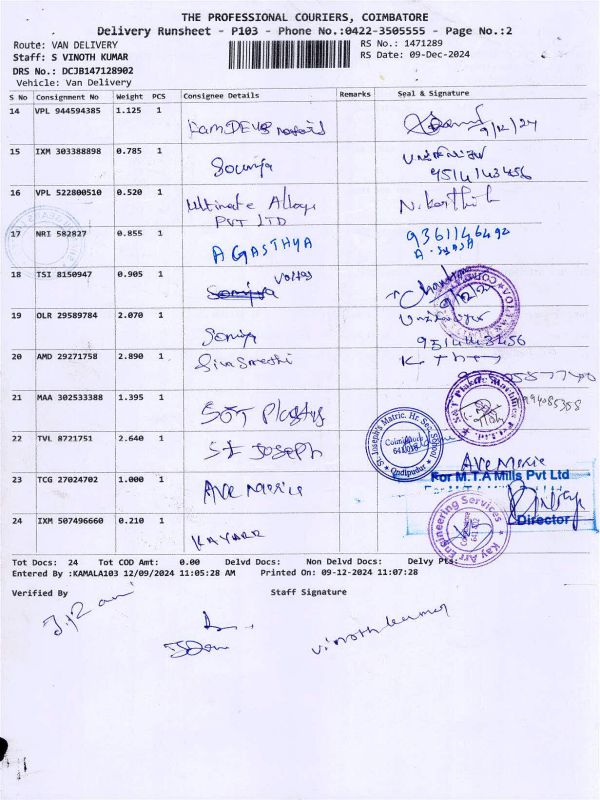 THE PROFESSIONAL COURIERS, COIMBATORE
Delivery Runsheet - P103 - Phone No.:0422-3505555 - Page No.:2
Route: VAN DELIVERY
RS No.: 1471289
Staff: S VINOTH KUMAR
RS Date: 09-Dec-2024
DRS No.: DCJB147128902
Vehicle: Van Delivery
S No Consignment No Weight PCS Consignee Details Remarks Seal & Signature
14 VPL 944594385 1.125 1
9/12/24
15 IXM 303388898 0.785 1
Soumya
9514143456
16 VPL 522800510 0.520 1
Ultimate Alloys
PVT LTD
N. Karthik
17 NRI 582827 0.855 1
AGASTHYA
9361146492
18 TSI 8150947 0.905 1
9/12/24
19 OLR 29589784 2.070 1
Soniya
9514143456
20 AMD 29271758 2.890 1
21 MAA 302533388 1.395 1
22 TVL 8721751 2.640 1
St Joseph
St. Joseph's Matric. Hr. Sec. School
Coimbatore
Ondipudur
23 TCG 27024702 1.000 1
Ave Maria
Ave Maria
For M.T.A Mills Pvt Ltd
Director
24 IXM 507496660 0.210 1
KAYARR
Kay Arr Engineering Services
Tot Docs: 24 Tot COD Amt: 0.00 Delvd Docs: Non Delvd Docs: Delvy Pts:
Entered By :KAMALA103 12/09/2024 11:05:28 AM Printed On: 09-12-2024 11:07:28
Verified By
Staff Signature
vinoth kumar